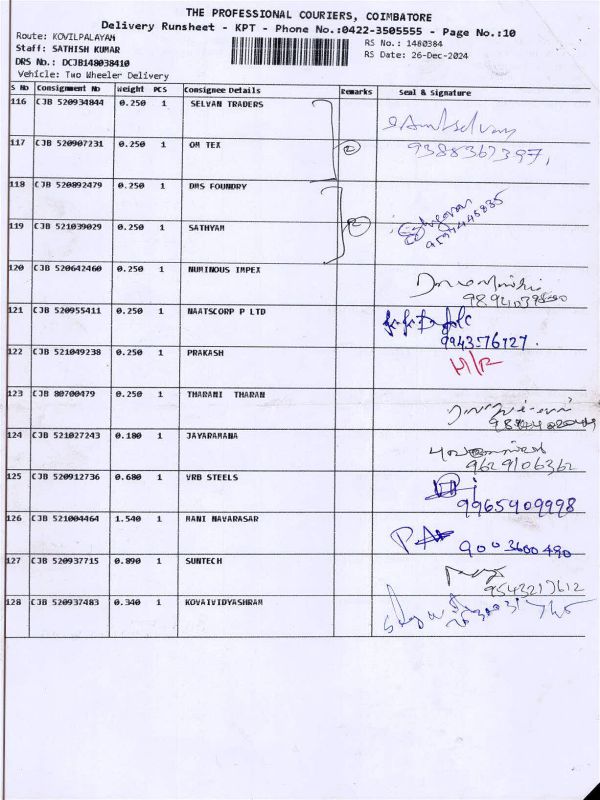 THE PROFESSIONAL COURIERS, COIMBATORE
Delivery Runsheet - KPT - Phone No.:0422-3505555 - Page No.:10
Route: KOVILPALAYAM
RS No.: 1480384
Staff: SATHISH KUMAR
RS Date: 26-Dec-2024
DRS No.: DCJB148038410
Vehicle: Two Wheeler Delivery
S No Consignment No Weight PCS Consignee Details Remarks Seal & signature
116 CJB 520934844 0.250 1 SELVAN TRADERS
117 CJB 520907231 0.250 1 OM TEX 9388367397,
118 CJB 520892479 0.250 1 DMS FOUNDRY
119 CJB 521039029 0.250 1 SATHYAM
120 CJB 520642460 0.250 1 NUMINOUS IMPEX
121 CJB 520955411 0.250 1 NAATSCORP P LTD 9943576127.
122 CJB 521049238 0.250 1 PRAKASH H/R
123 CJB 80700479 0.250 1 THARANI THARAN
124 CJB 521027243 0.180 1 JAYARAMANA 9629106362
125 CJB 520912736 0.680 1 VRB STEELS 9965909998
126 CJB 521004464 1.540 1 MANI NAVARASAR 9003600490
127 CJB 520937715 0.890 1 SUNTECH 9543217612
128 CJB 520937483 0.340 1 KOVAIVIDYASHRAM